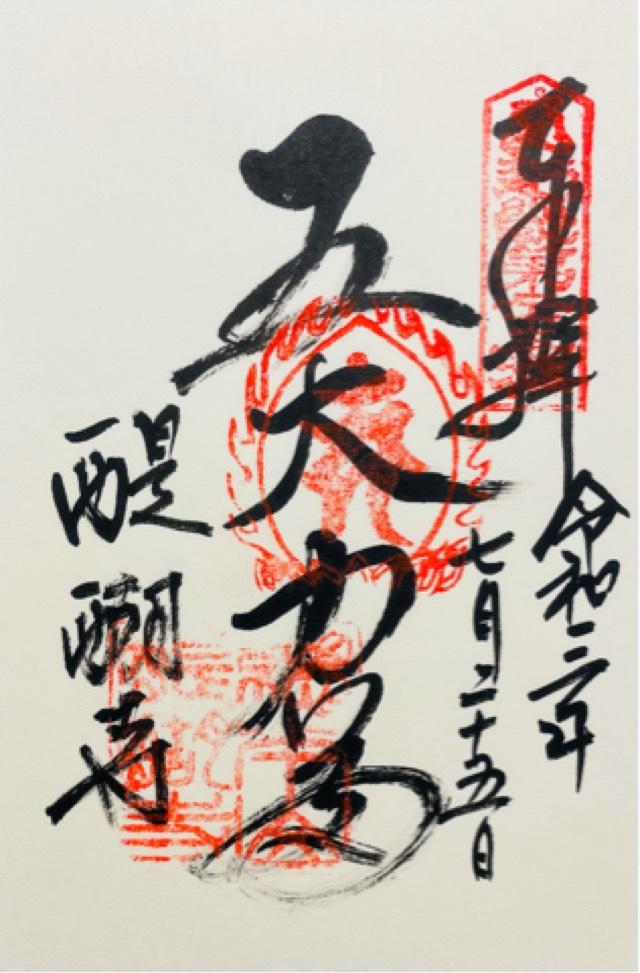 奉拝
令和二年
七月二十五日
五大力尊
醍醐寺